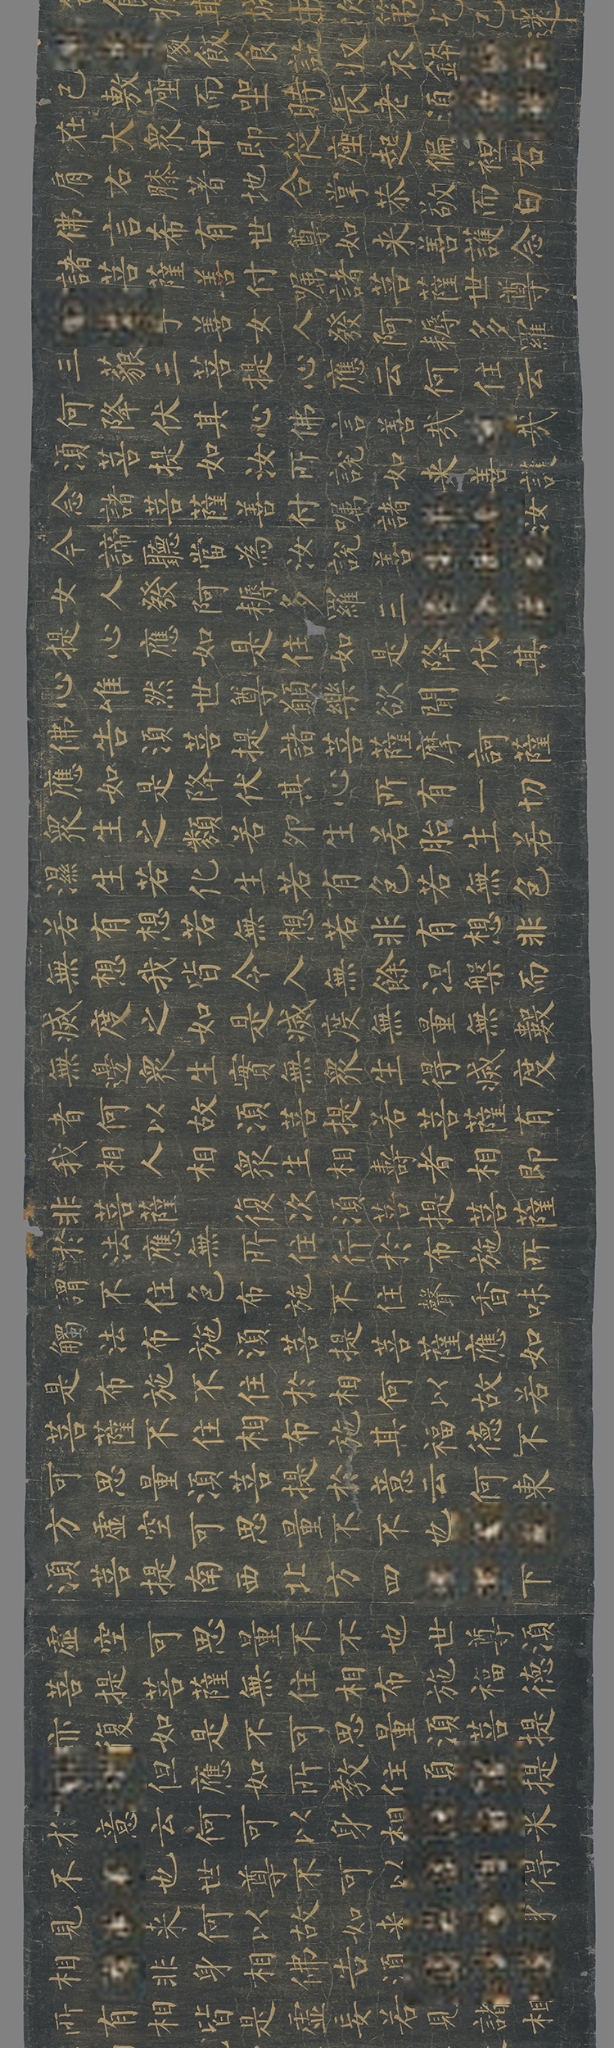 飯食訖收衣鉢
已敷座而坐時長老須
在大衆中即從座起偏袒右
肩右膝著地合掌恭敬而白
佛言希有世尊如來善護念
諸菩薩善付囑諸菩薩世尊
子善女人發阿耨多羅
三藐三菩提心應云何住云
何降伏其心佛言善哉哉
須菩提如汝所說如來善護
念諸菩薩善付囑諸汝
今諦聽當為汝說善
女人發阿耨多羅三
提心應如是住如是降伏其
心唯然世尊願樂欲聞
佛告須菩提諸菩薩摩訶薩
應如是降伏其心所有一切
衆生之類若卵生若胎生若
濕生若化生若有色若無色
若有想若無想若非有想非
無想我皆令入無餘涅槃而
滅度之如是滅度無量無數
無邊衆生實無衆生得滅度
者何以故須菩提若菩薩有
我相人相衆生相壽者相即
非菩薩復次須菩提菩薩
於法應無所住行於布施所
謂不住色布施不住聲香味
觸法布施須菩提菩薩應如
是布施不住於相何以故若
菩薩不住相布施其福德不
可思量須菩提於意云何東
方虛空可思量不不也
須菩提南西北方四下
虛空可思量不不也世尊須
菩提菩薩無住相布施福德
亦復如是不可思量須菩提
但應如所教住須提
於意云何可以身相來
不也世尊不可以得
見來何以故如來
相非身相佛告須
所有相皆是虛妄若見諸相